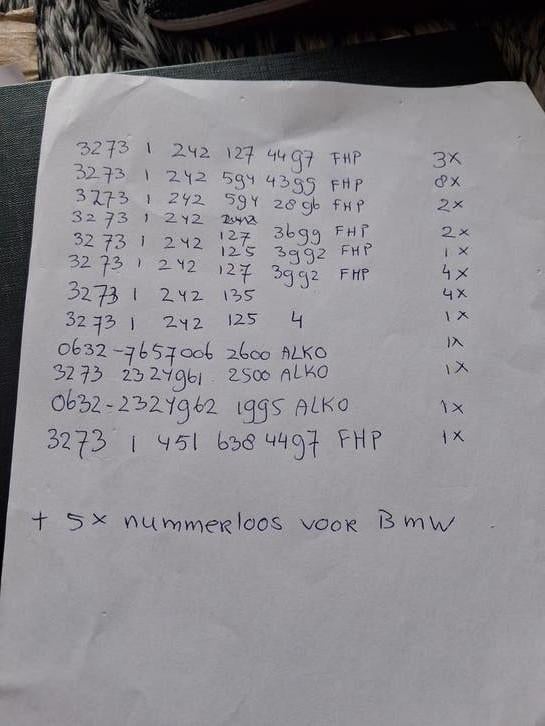 3273 1 242 127 4497 FHP 3x
3273 1 242 594 4399 FHP 8x
3273 1 242 594 2896 FHP 2x
3273 1 242 127 3699 FHP 2x
3273 1 242 125 3992 FHP 1x
3273 1 242 127 3992 FHP 4x
3273 1 242 135 4x
3273 1 242 125 4 1x
0632-7657006 2600 ALKO 1x
3273 2324961 2500 ALKO 1x
0632-2324962 1995 ALKO 1x
3273 1 451 638 4497 FHP 1x
+ 5x nummerloos voor BMW